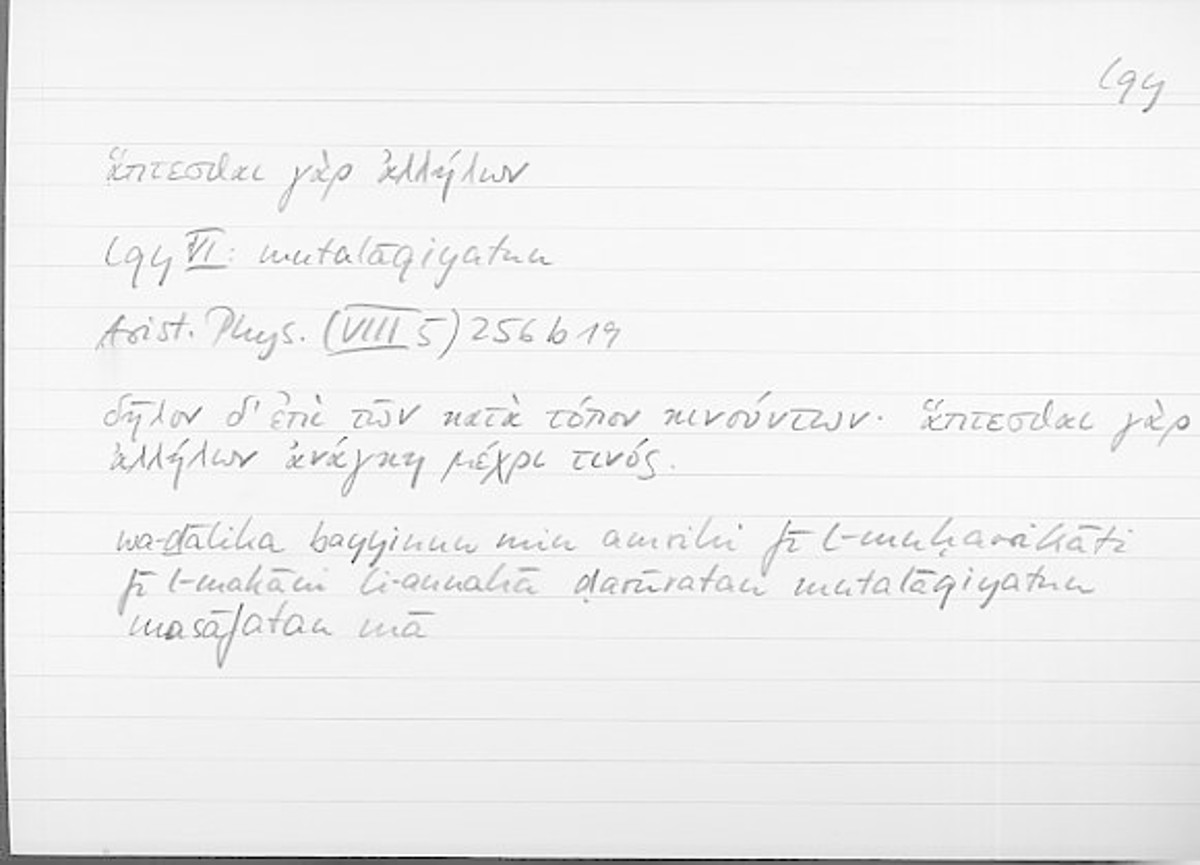 lqy
ἅπτεσθαι γὰρ ἀλλήλων
lqy VI: mutalāqiyatun
Arist. Phys. (VIII 5) 256 b 19
δῆλον δ' ἐπὶ τῶν κατὰ τόπον κινούντων· ἅπτεσθαι γὰρ
ἀλλήλων ἀνάγκη μέχρι τινός.
wa-ḏālika bayyinun min amrihi fī l-muḥarrikāti
fī l-makāni li-annahā ḍarūratan mutalāqiyatun
masāfatan mā